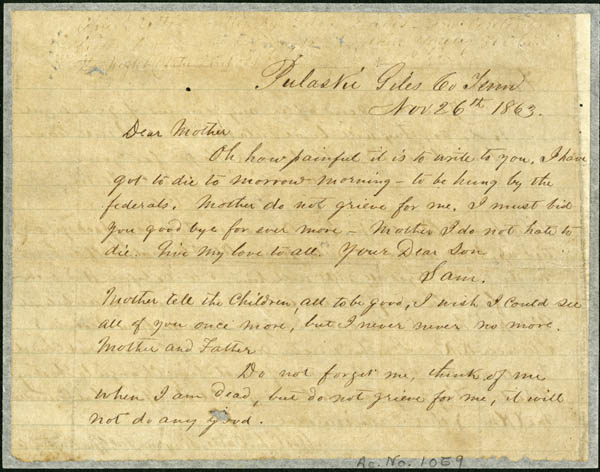 Pulaski Giles Co Tenn
Nov 26th 1863.
Dear Mother
Oh how painful it is to write to you. I have
got to die to morrow morning – to be hung by the
federals. Mother do not grieve for me. I must bid
you good bye for ever more – Mother I do not hate to
die. Give my love to all. Your Dear Son
Sam.
Mother tell the Children, all to be good, I wish I could see
all of you once more, but I never never no more.
Mother and Father
Do not forget me, think of me
when I am dead, but do not grieve for me, it will
not do any good.
Ac. No. 1059